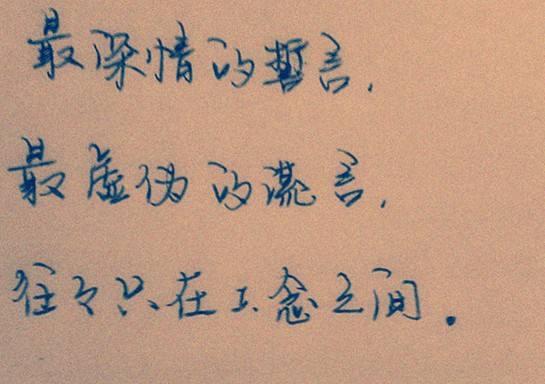 最深情的誓言,
最虚伪的谎言,
往々只在工念之间.